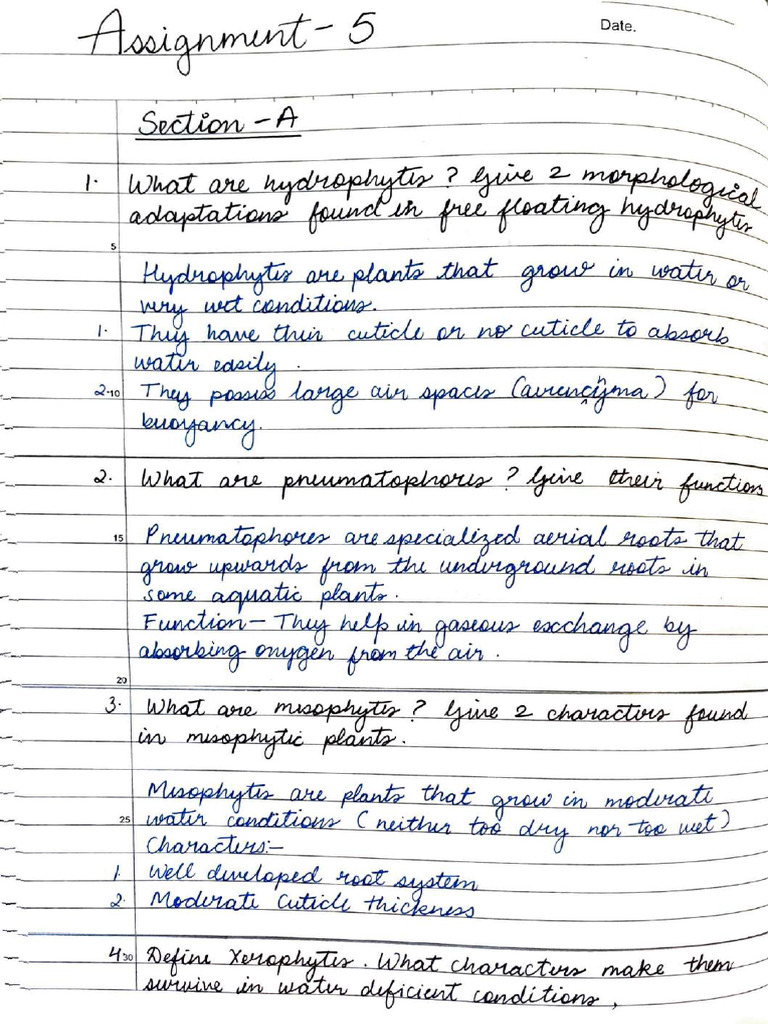 Assignment - 5
Date.
Section - A
1. What are hydrophytes ? Give 2 morphological
adaptations found in free floating hydrophytes
5
Hydrophytes are plants that grow in water or
very wet conditions.
1. They have thin cuticle or no cuticle to absorb
water easily .
2. 10 They possess large air spaces (aerenchyma) for
buoyancy.
2. What are pneumatophores ? Give their function
15 Pneumatophores are specialized aerial roots that
grow upwards from the underground roots in
some aquatic plants.
Function - They help in gaseous exchange by
absorbing oxygen from the air .
20
3. What are mesophytes ? Give 2 characters found
in mesophytic plants.
Mesophytes are plants that grow in moderate
25 water conditions ( neither too dry nor too wet )
Characters:-
1. Well developed root system
2. Moderate Cuticle thickness
4. 30 Define Xerophytes . What characters make them
survive in water deficient conditions ,